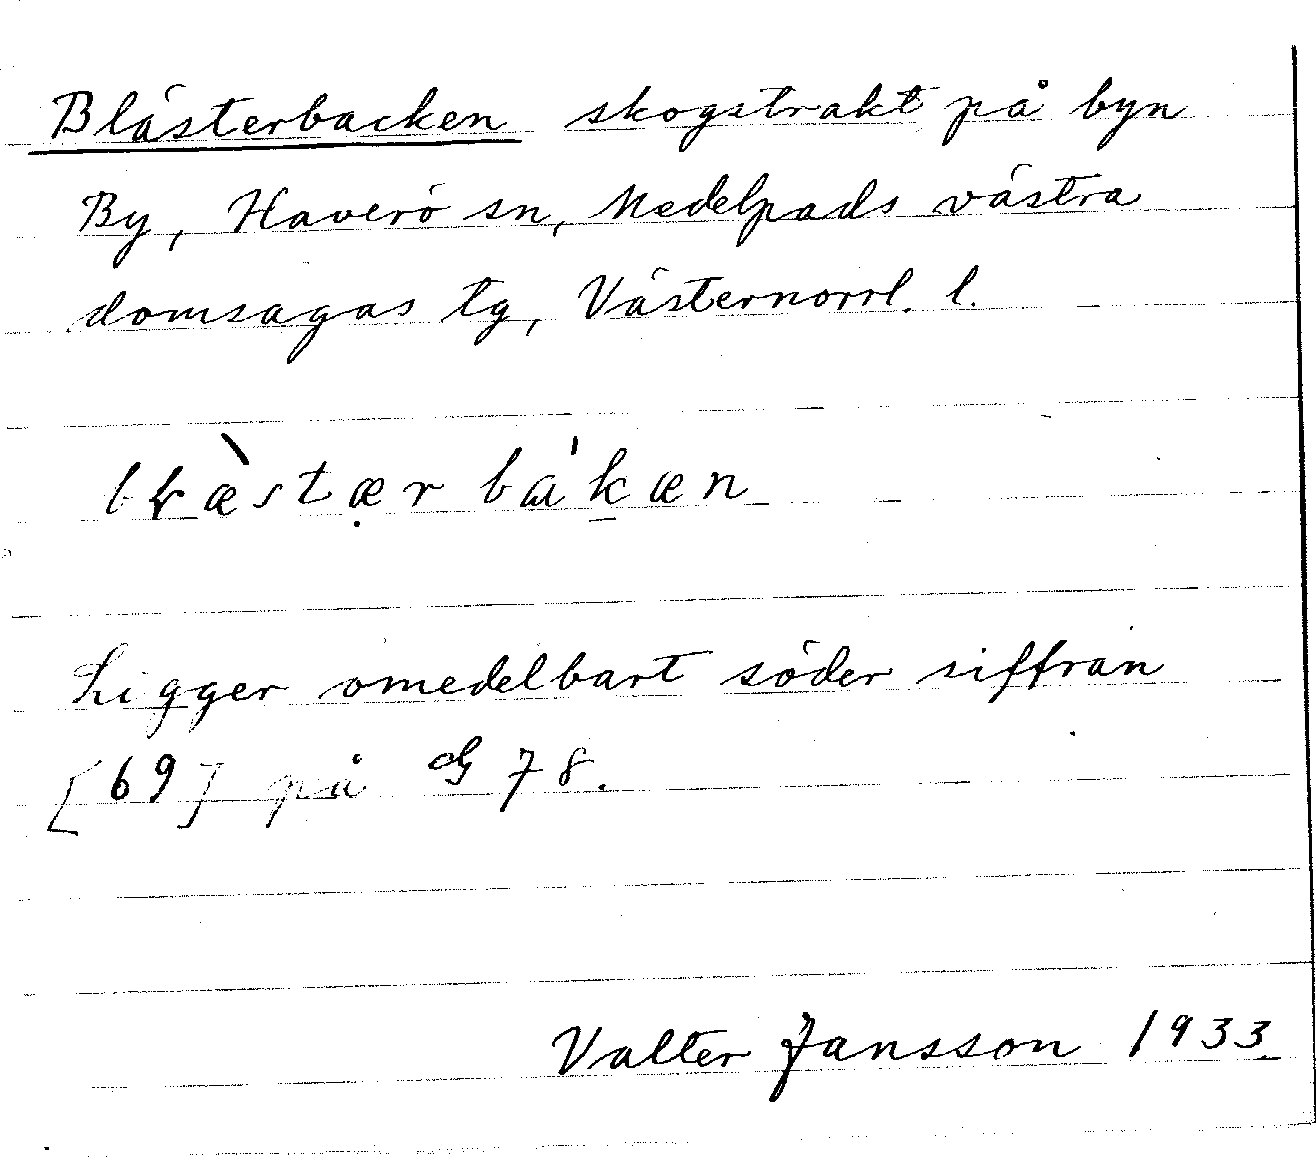 Blästerbacken skogstrakt på byn
By, Haverö sn, Medelpads västra
domsagas tg, Västernorrl. l.
Ligger omedelbart söder siffran
[69] på G 78.
Valter Jansson 1933.